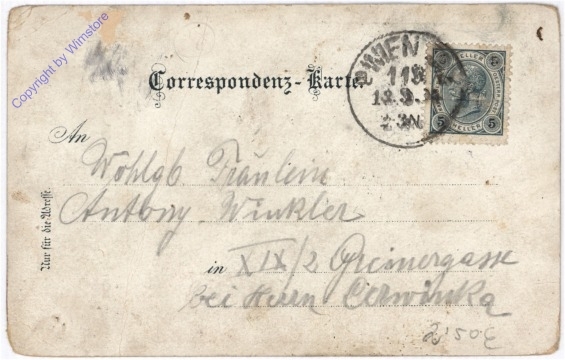 Copyright by Wimstore
Correspondenz-Karte
WIEN
5 HELLER 5
An
Wohlgb Fräulein
Antony Winkler
in XIX/2 Greinergasse
bei Herrn Cerwinka
Nur für die Adresse.